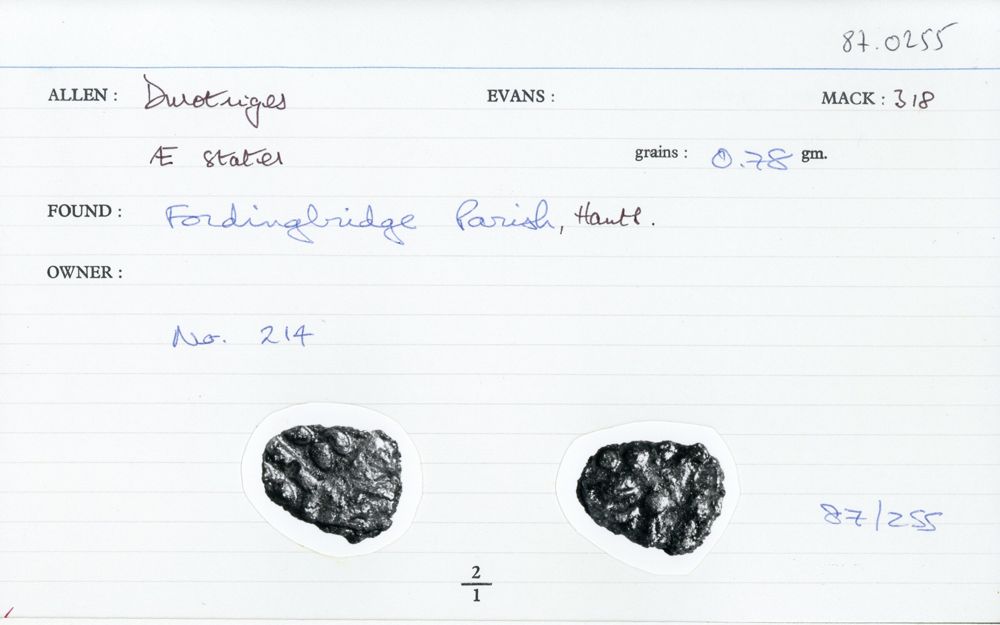 87.0255
ALLEN : Durotriges EVANS : MACK : 318
Æ stater grains : 0.78 gm.
FOUND : Fordingbridge Parish, Hants.
OWNER :
No. 214
87/255
2
1